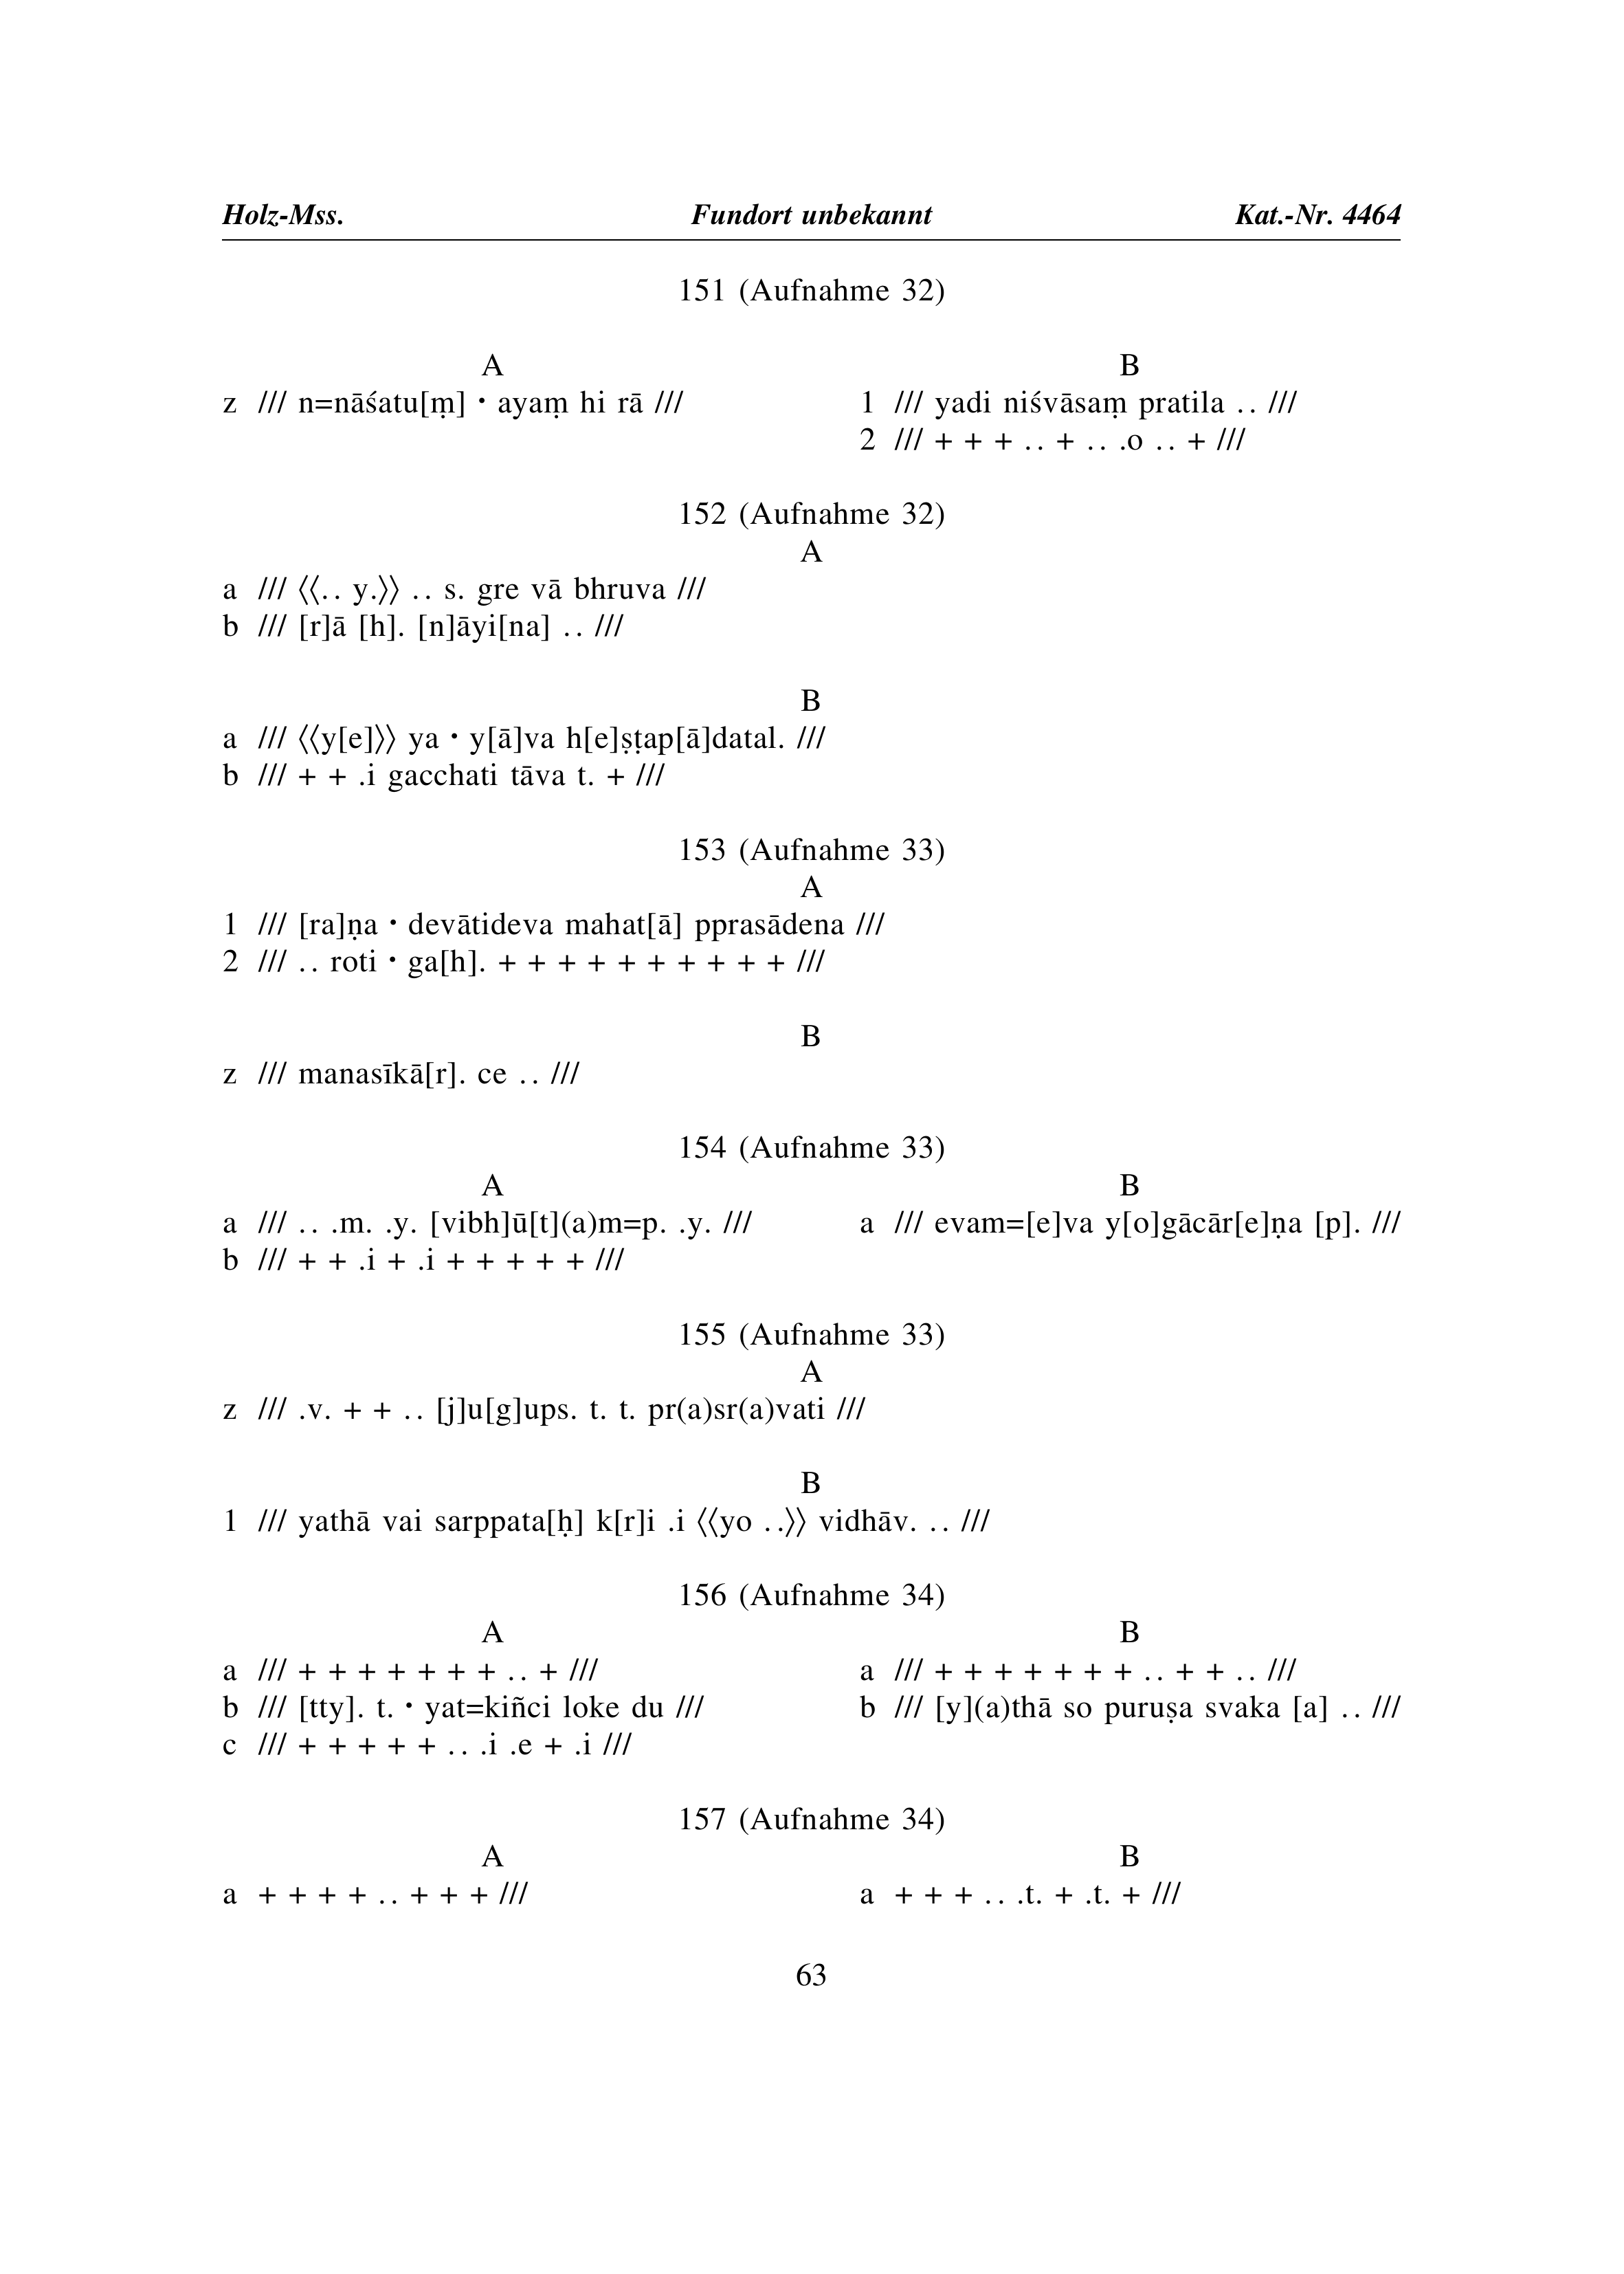 Holz-Mss. Fundort unbekannt Kat.-Nr. 4464
151 (Aufnahme 32)
A
z /// n=nāśatu[ṃ] • ayaṃ hi rā ///
B
1 /// yadi niśvāsaṃ pratila .. ///
2 /// + + + .. + .. .o .. + ///
152 (Aufnahme 32)
A
a /// ⟨⟨.. y.⟩⟩ .. s. gre vā bhruva ///
b /// [r]ā [h]. [n]āyi[na] .. ///
B
a /// ⟨⟨y[e]⟩⟩ ya • y[ā]va h[e]ṣṭap[ā]datal. ///
b /// + + .i gacchati tāva t. + ///
153 (Aufnahme 33)
A
1 /// [ra]ṇa • devātideva mahat[ā] pprasādena ///
2 /// .. roti • ga[h]. + + + + + + + + + + ///
B
z /// manasīkā[r]. ce .. ///
154 (Aufnahme 33)
A
a /// .. .m. .y. [vibh]ū[t](a)m=p. .y. ///
b /// + + .i + .i + + + + + ///
B
a /// evam=[e]va y[o]gācār[e]ṇa [p]. ///
155 (Aufnahme 33)
A
z /// .v. + + .. [j]u[g]ups. t. t. pr(a)sr(a)vati ///
B
1 /// yathā vai sarppata[ḥ] k[r]i .i ⟨⟨yo ..⟩⟩ vidhāv. .. ///
156 (Aufnahme 34)
A
a /// + + + + + + + .. + ///
b /// [tty]. t. • yat=kiñci loke du ///
c /// + + + + + .. .i .e + .i ///
B
a /// + + + + + + + .. + + .. ///
b /// [y](a)thā so puruṣa svaka [a] .. ///
157 (Aufnahme 34)
A
a + + + + .. + + + ///
B
a + + + .. .t. + .t. + ///
63